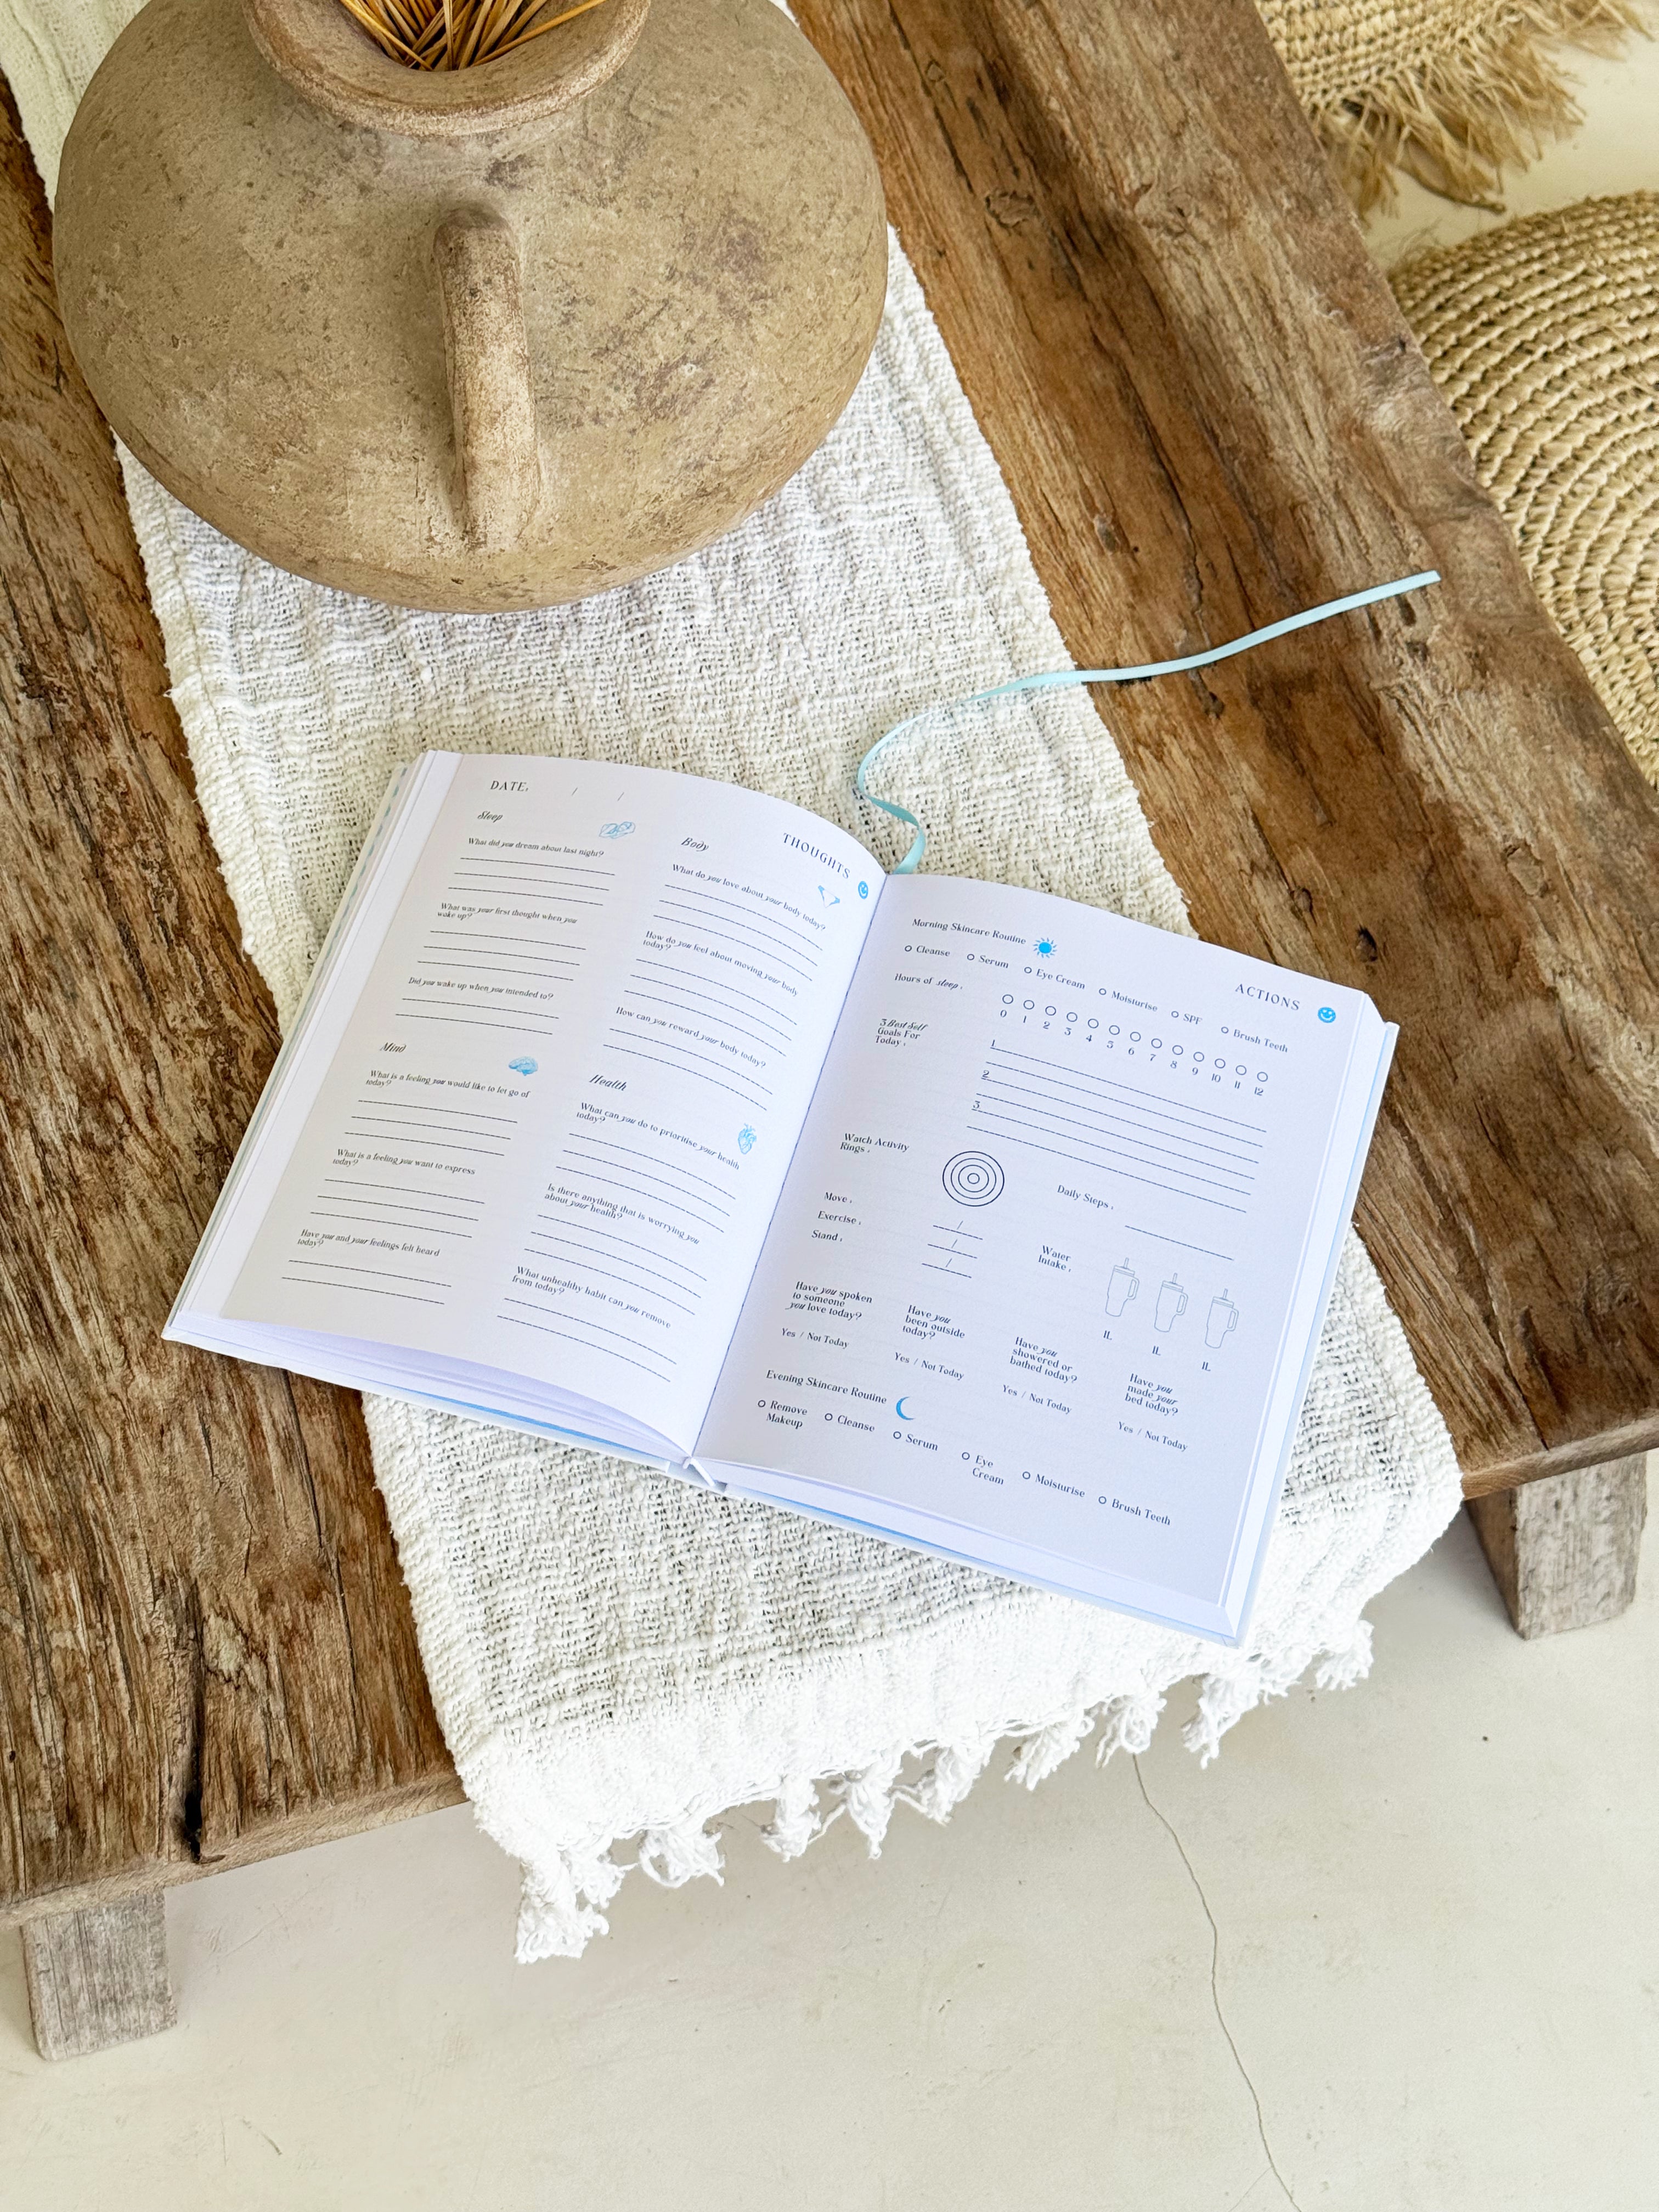 DATE: / /
THOUGHTS
Sleep
What did you dream about last night?
What was your first thought when you
wake up?
Did you wake up when you intended to?
Mind
What is a feeling you would like to let go of
today?
What is a feeling you want to express
today?
Have you and your feelings felt heard
today?
Body
What do you love about your body today?
How do you feel about moving your body
today?
How can you reward your body today?
Health
What can you do to prioritise your health
today?
Is there anything that is worrying you
about your health?
What unhealthy habit can you remove
from today?
ACTIONS
Morning Skincare Routine
Cleanse Serum Eye Cream Moisturise SPF Brush Teeth
Hours of sleep:
0 1 2 3 4 5 6 7 8 9 10 11 12
3 Best Self
Goals For
Today:
1
2
3
Watch Activity
Rings:
Move: /
Exercise: /
Stand: /
Daily Steps:
Water
Intake:
1L 1L 1L
Have you spoken
to someone
you love today?
Yes / Not Today
Have you
been outside
today?
Yes / Not Today
Have you
showered or
bathed today?
Yes / Not Today
Have you
made your
bed today?
Yes / Not Today
Evening Skincare Routine
Remove
Makeup
Cleanse
Serum
Eye
Cream
Moisturise
Brush Teeth